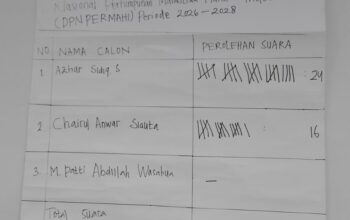 Nasional Perhimpunan Mahasiswa
(DPN PERMAHI) Periode 2026-2028
NO NAMA CALON PEROLEHAN SUARA
1. Azhar Sidiq S : 24
2 Chairul Anwar : 16
3. M. Patti Abdillah -
Total Suara